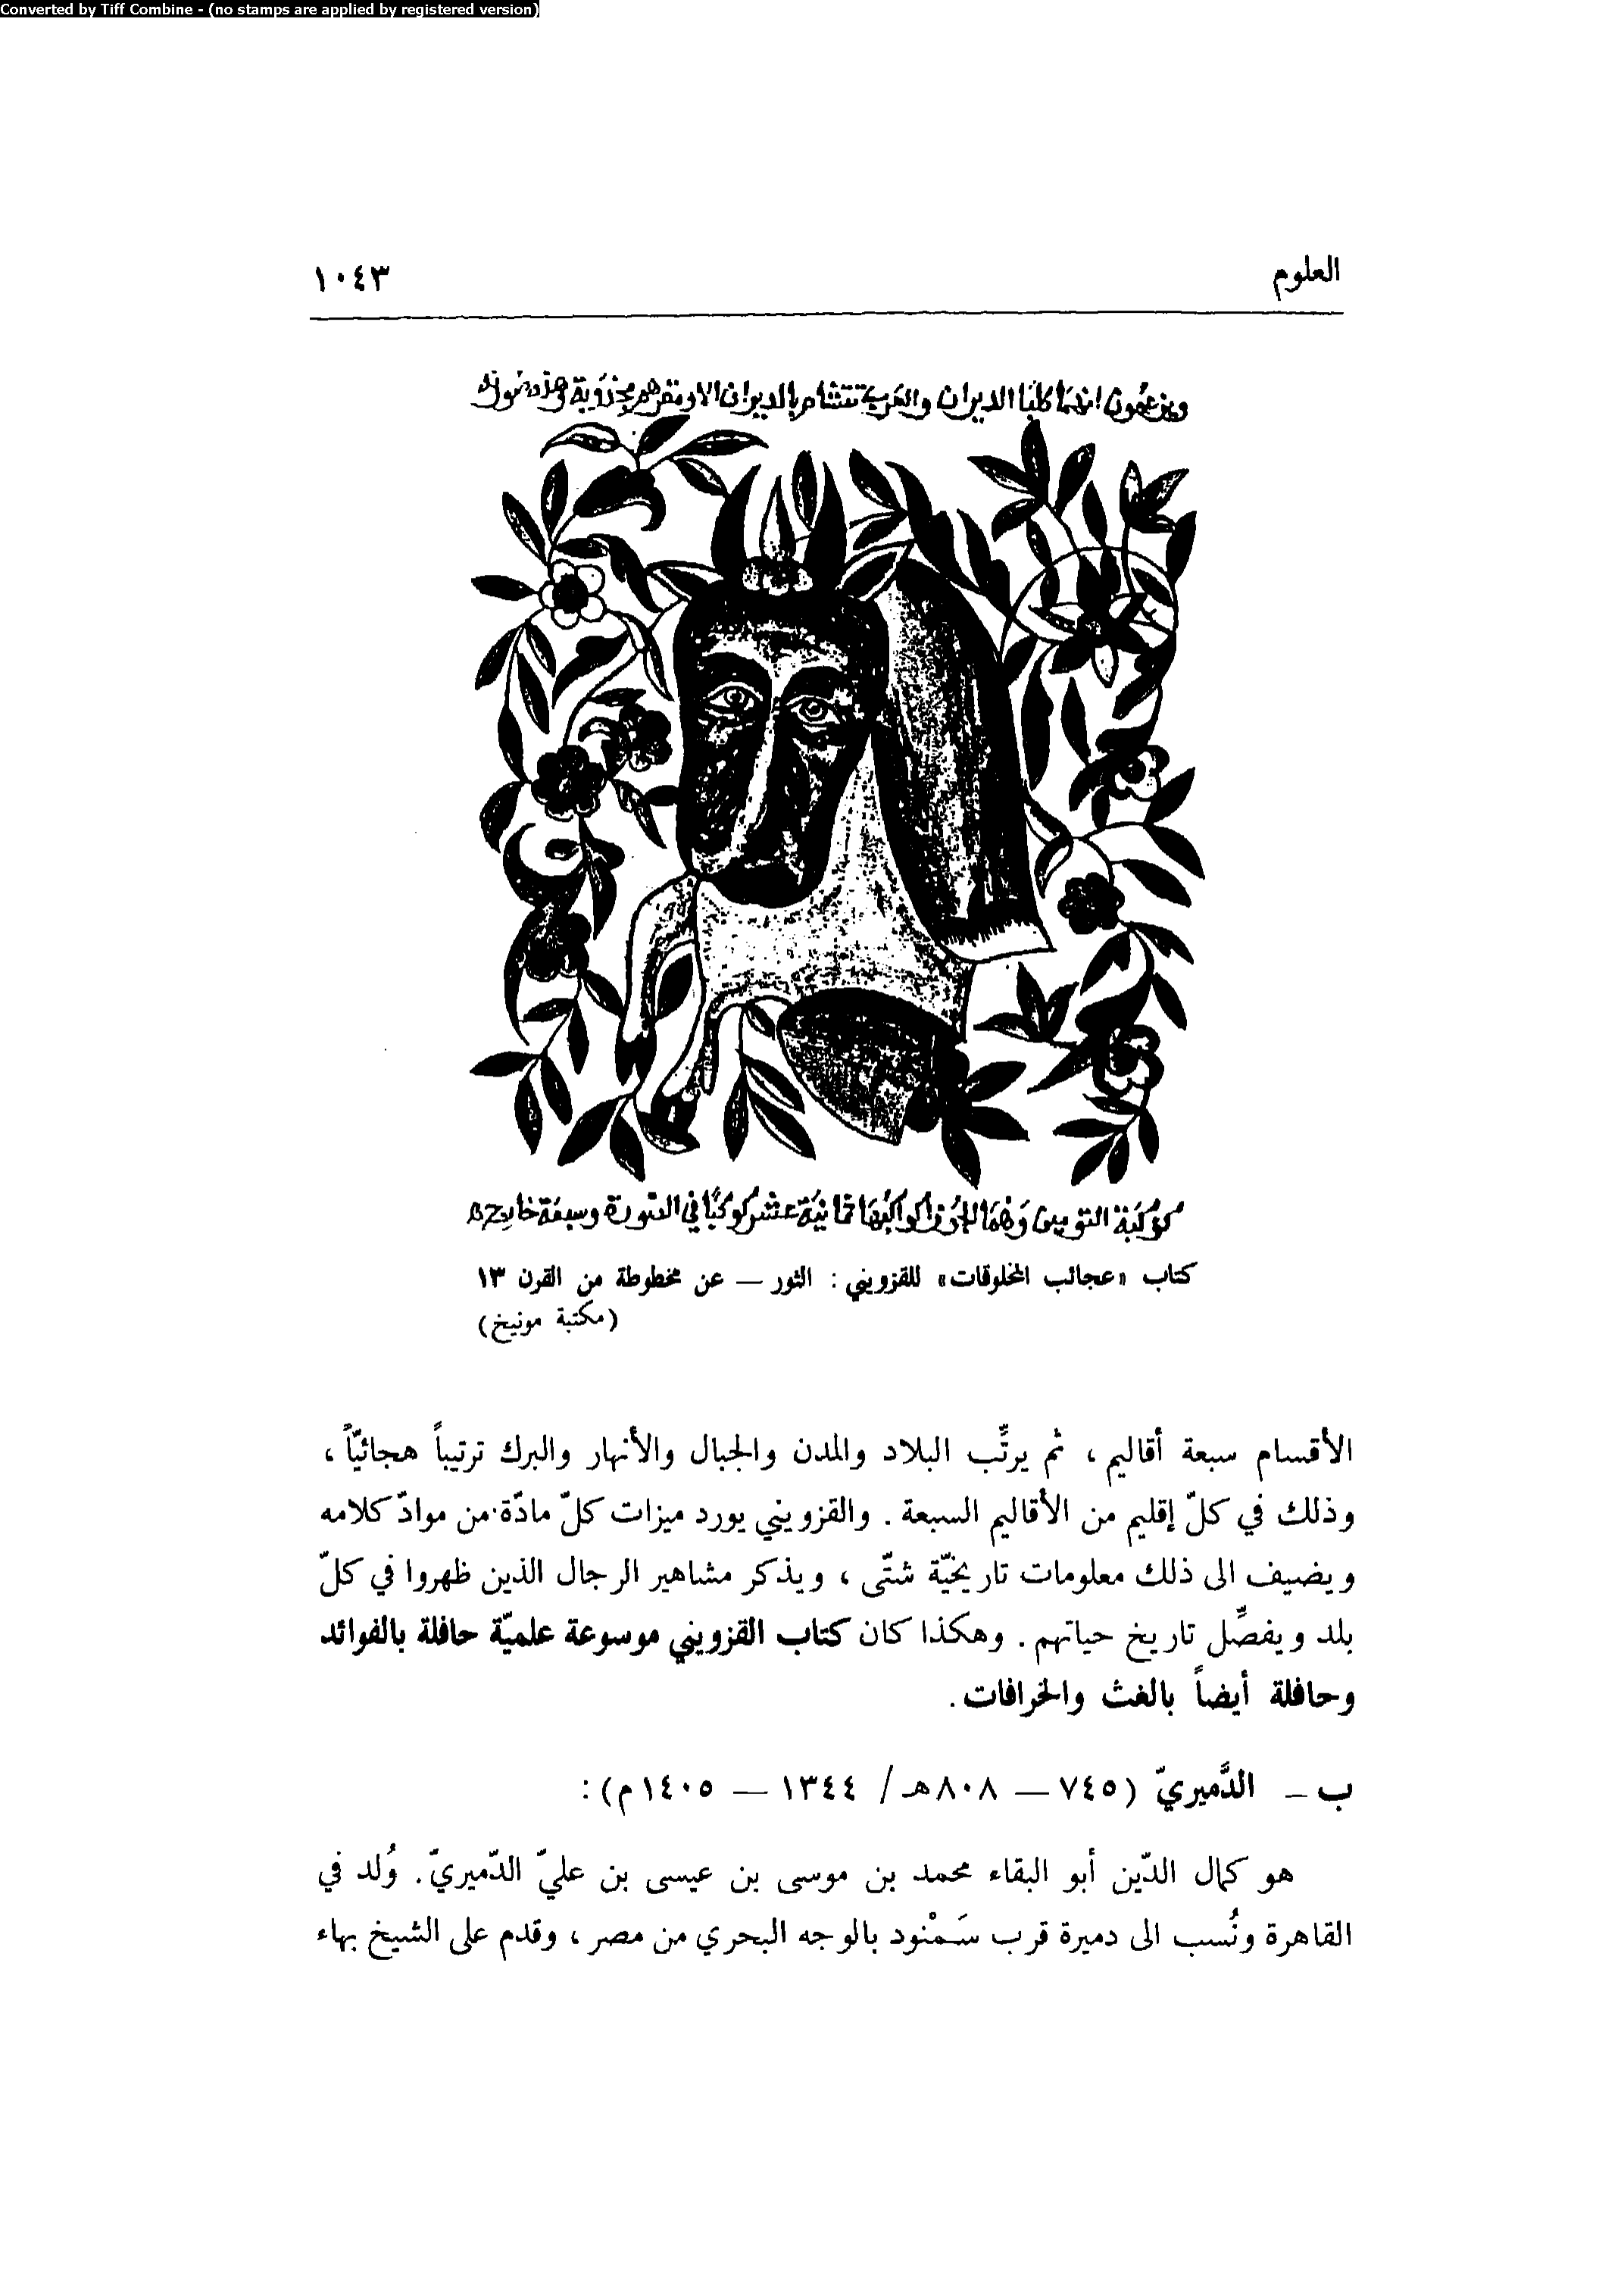 Converted by Tiff Combine - (no stamps are applied by registered version)
العلوم ١٠٤٣
ويزعمون انهما كلبا الدبران والعرب تتشام بالدبران
كوكبة التومين وهما الجوزا كواكبها ثمانية عشر كوكبًا في الصورة وسبعة خارجها
كتاب «عجائب المخلوقات» للقزويني : الثور — عن مخطوطة من القرن ١٣
(مكتبة مونيخ)
الأقسام سبعة أقاليم ، ثم يرتِّب البلاد والمدن والجبال والأنهار والبرك ترتيباً هجائيّاً ،
وذلك في كلّ إقليم من الأقاليم السبعة . والقزويني يورد ميزات كلّ مادّة من موادّ كلامه
ويضيف الى ذلك معلومات تاريخيّة شتّى ، ويذكر مشاهير الرجال الذين ظهروا في كلّ
بلد ويفصِّل تاريخ حياتهم . وهكذا كان كتاب القزويني موسوعة علميّة حافلة بالفوائد
وحافلة أيضاً بالغث والخرافات .
ب – الدَّميريّ (٧٤٥ — ٨٠٨هـ / ١٣٤٤ — ١٤٠٥م) :
هو كمال الدّين أبو البقاء محمد بن موسى بن عيسى بن عليّ الدّميريّ . وُلد في
القاهرة ونُسب الى دميرة قرب سَمْنود بالوجه البحري من مصر ، وقدم على الشيخ بهاء